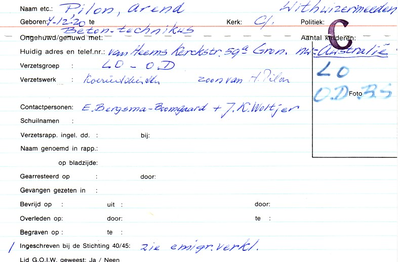 Naam etc.: Pilon, Arend Uithuizermeeden
Geboren: 7-12-20 te Kerk: Politiek:
Beton-technikus
Ongehuwd/gehuwd met: Aantal kinderen:
Huidig adres en telef.nr.: van Heems Kerckstr. 59a Gron. Australië
Verzetsgroep : LO - O.D
Verzetswerk : Koerierdiensten zoon van Pilon
C
LO
O.D Foto BS
Contactpersonen: E. Bergsma-Boomgaard + J.K. Woltjer
Schuilnaam :
Verzetsrapp. ingel. dd. : bij:
Naam genoemd in rapp.:
op bladzijde:
Gearresteerd op : door:
Gevangen gezeten in :
Bevrijd op : uit : door:
Overleden op : door: te :
Begraven op : te :
Ingeschreven bij de Stichting 40/45: zie emigr. verkl.
Lid G.O.I.W. geweest: Ja / Neen